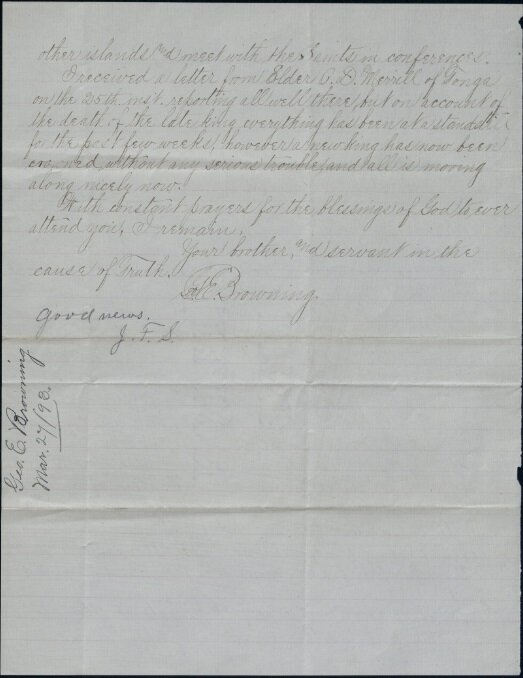 other islands and meet with the Saints in conferences.
I received a letter from Elder O. D. Merrill of Tonga
on the 25th inst. reporting all well there, but on account of
the death of the late king everything has been at a standstill
for the past few weeks, however a new king has now been
crowned, without any serious trouble, and all is moving
along nicely now.
With constant prayers for the blessings of God to ever
attend you, I remain,
Your brother, and servant in the
cause of Truth.
Geo E. Browning.
Good news.
J. F. S.
Geo. E. Browning
Mar. 27/93.